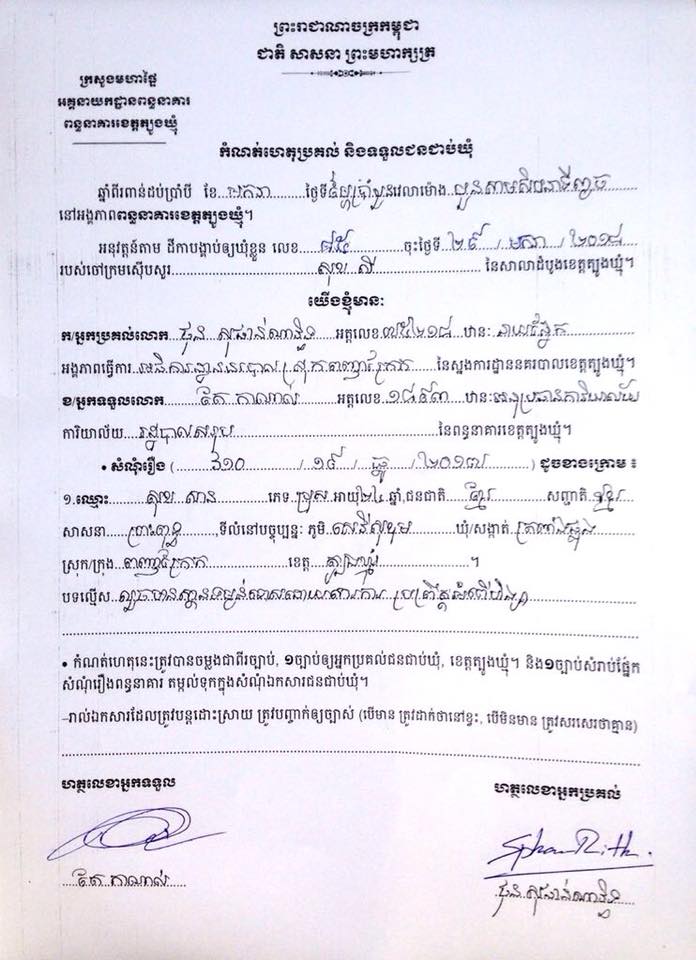 ព្រះរាជាណាចក្រកម្ពុជា
ជាតិ សាសនា ព្រះមហាក្សត្រ
ក្រសួងមហាផ្ទៃ
អគ្គនាយកដ្ឋានពន្ធនាគារ
ពន្ធនាគារខេត្តត្បូងឃ្មុំ
កំណត់ហេតុប្រគល់ និងទទួលជនជាប់ឃុំ
ឆ្នាំពីរពាន់ដប់ប្រាំបី ខែ មករា ថ្ងៃទី ម្ភៃប្រាំបួន វេលាម៉ោង បួនសាមសិបនាទីល្ងាច
នៅអង្គភាពពន្ធនាគារខេត្តត្បូងឃ្មុំ។
អនុវត្តន៍តាម ដីកាបង្គាប់ឲ្យឃុំខ្លួន លេខ ៧៥ ចុះថ្ងៃទី ២៩ / មករា / ២០១៨
របស់ចៅក្រមស៊ើបសួរ សុខ ស៊ី នៃសាលាដំបូងខេត្តត្បូងឃ្មុំ។
យើងខ្ញុំមានៈ
ក/អ្នកប្រគល់លោក ផុន សុផាន់ណារិទ្ធ អត្តលេខ ៧៥២១៨ ឋានៈ នាយផ្នែក
អង្គភាពធ្វើការ អធិការដ្ឋាននគរបាលស្រុកពញាក្រែក នៃស្នងការដ្ឋាននគរបាលខេត្តត្បូងឃ្មុំ។
ខ/អ្នកទទួលលោក កាណាល់ អត្តលេខ ឋានៈ អនុប្រធានការិយាល័យ
ការិយាល័យ រដ្ឋបាលសរុប នៃពន្ធនាគារខេត្តត្បូងឃ្មុំ។
• សំណុំរឿង ( ៦១០ / ១៩ / ធ្នូ / ២០១៧ ) ដូចខាងក្រោម ៖
១.ឈ្មោះ សុខ សាន ភេទ ប្រុស អាយុ ២៤ ឆ្នាំ,ជនជាតិ ខ្មែរ សញ្ជាតិ ខ្មែរ
សាសនា ព្រះពុទ្ធ ,ទីលំនៅបច្ចុប្បន្នៈ ភូមិ ឃុំ/សង្កាត់ ត្រពាំងផ្លុង
ស្រុក/ក្រុង ពញាក្រែក ខេត្ត ត្បូងឃ្មុំ ។
បទល្មើស លួចមានស្ថានទម្ងន់ទោសដោយសារការ ប្រព្រឹត្តអំពើហិង្សា
• កំណត់ហេតុនេះត្រូវបានចម្លងជាពីរច្បាប់, ១ច្បាប់ឲ្យអ្នកប្រគល់ជនជាប់ឃុំ, ខេត្តត្បូងឃ្មុំ។ និង១ច្បាប់សំរាប់ផ្នែក
សំណុំរឿងពន្ធនាគារ តម្កល់ទុកក្នុងសំណុំឯកសារជនជាប់ឃុំ។
–រាល់ឯកសារដែលត្រូវបន្តដោះស្រាយ ត្រូវបញ្ជាក់ឲ្យច្បាស់ (បើមាន ត្រូវដាក់ថានៅខ្វះ, បើមិនមាន ត្រូវសរសេរថាគ្មាន)
ហត្ថលេខាអ្នកទទួល
ហត្ថលេខាអ្នកប្រគល់
កាណាល់
ផុន សុផាន់ណារិទ្ធ